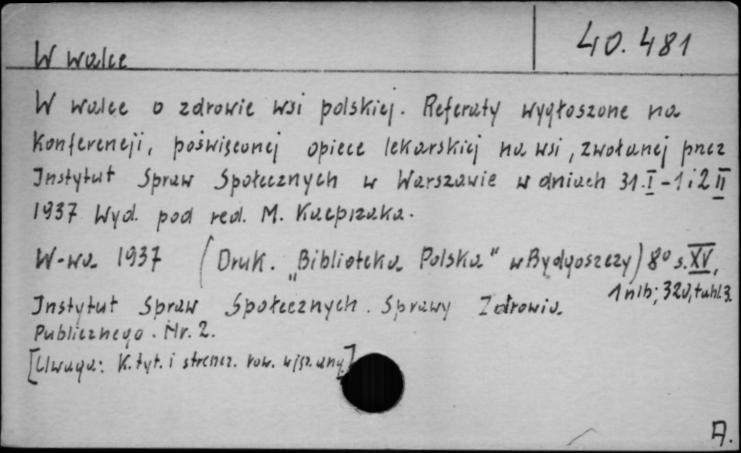 40.481
W walce
W walce o zdrowie wsi polskiej. Referaty wygłoszone na
Konferencji, poświęconej opiece lekarskiej na wsi, zwołanej przez
Instytut Spraw Społecznych w Warszawie w dniach 31.I-1 i 2 II
1937 Wyd. pod red. M. Kacprzaka.
W-wa 1937 (Druk. "Biblioteka Polska" w Bydgoszczy) 8° s. XV,
1 nlb; 320, tabl. 3.
Instytut Spraw Społecznych. Sprawy Zdrowia
Publicznego. Nr. 2.
[Uwaga: K. tyt. i streszcz. row. w jęz. ang.]
A.